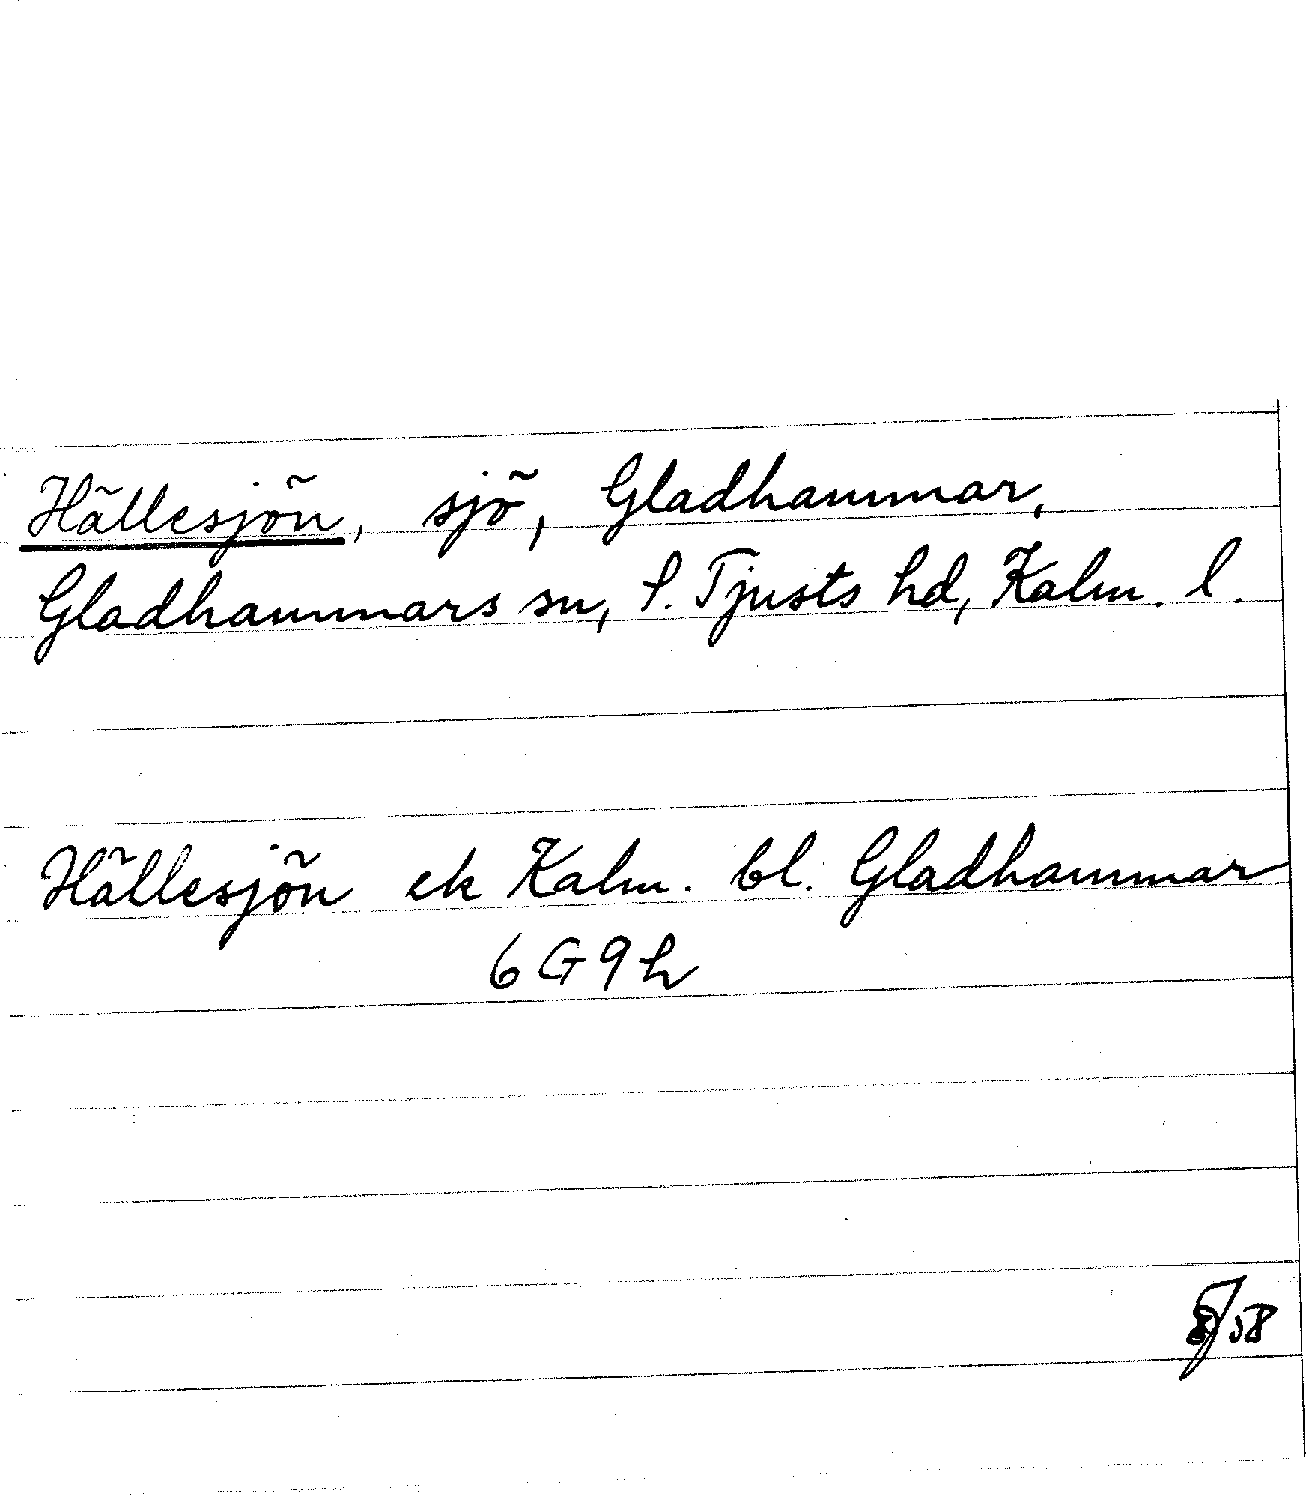 Hällesjön, sjö, Gladhammar,
Gladhammars sn, S. Tjusts hd, Kalm. l.
Hällesjön ek Kalm. bl. Gladhammar
6G9h